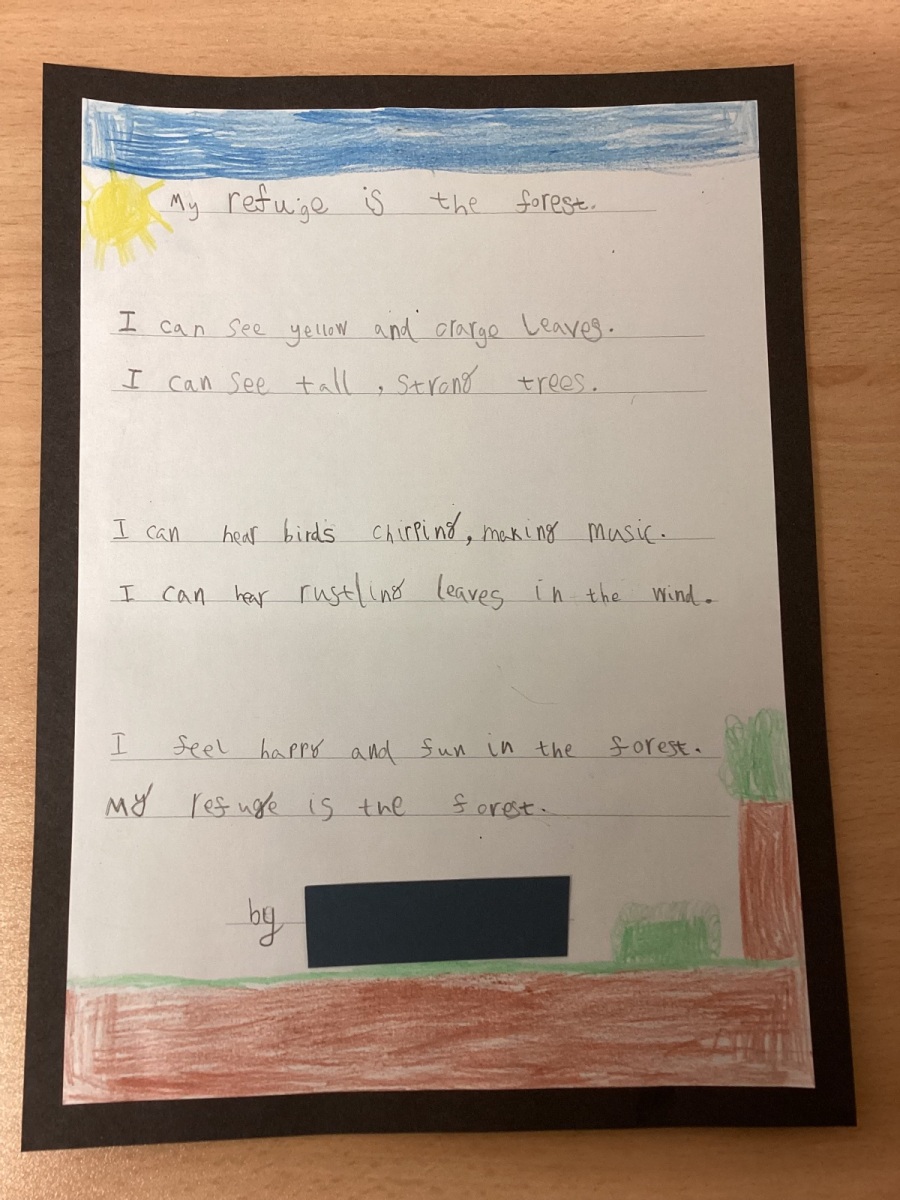 My refuge is the forest.
I can see yellow and orange leaves.
I can see tall, strong trees.
I can hear birds chirping, making music.
I can hear rustling leaves in the wind.
I feel happy and fun in the forest.
My refuge is the forest.
by